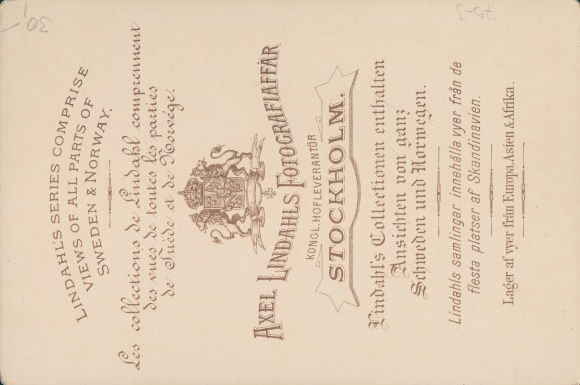 LINDAHL'S SERIES COMPRISE
VIEWS OF ALL PARTS OF
SWEDEN & NORWAY.
Les collections de Lindahl comprennent
des vues de toutes les parties
de Suède et de Norvège.
AXEL LINDAHLS FOTOGRAFIAFFÄR
KONGL. HOFLEVERANTÖR
STOCKHOLM.
Lindahl's Collectionen enthalten
Ansichten von ganz
Schweden und Norwegen.
Lindahls samlingar innehålla vyer från de
flesta platser af Skandinavien.
Lager af vyer från Europa, Asien & Afrika.
30